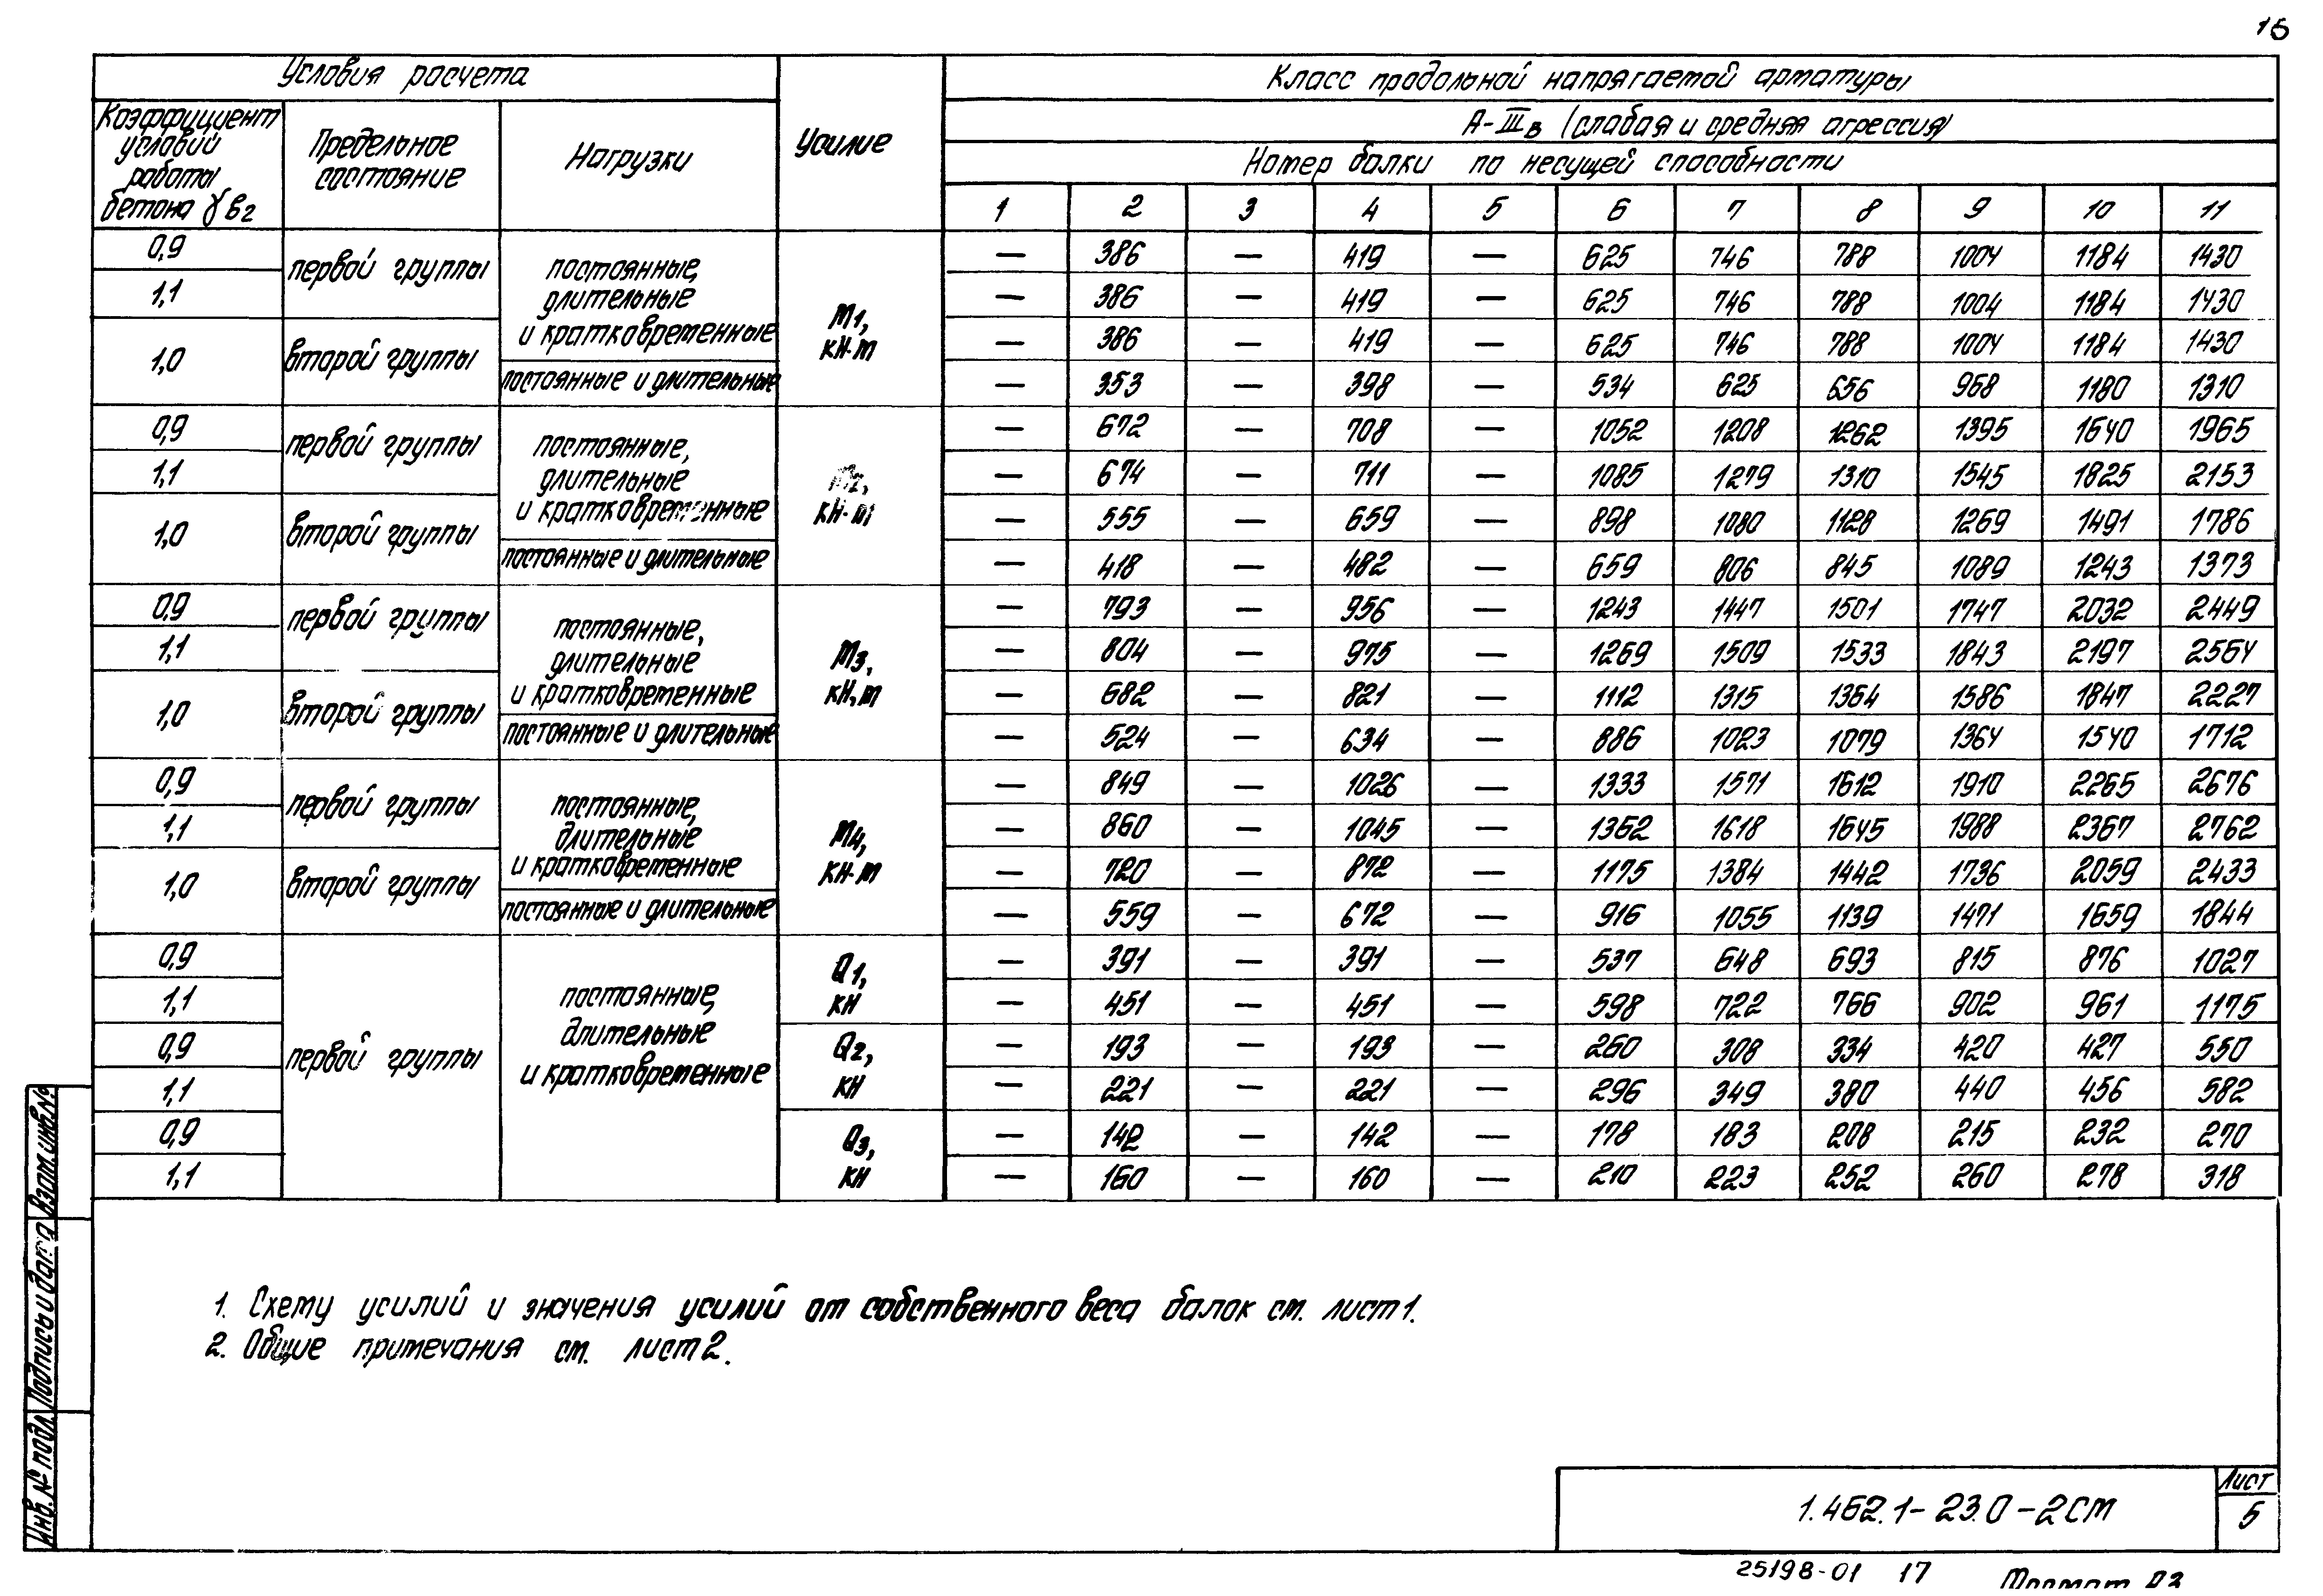 16
Условия расчета
Усилие
Класс продольной напрягаемой арматуры
Коэффициент условий работы бетона γв2
Предельное состояние
Нагрузки
А-IIIв (слабая и средняя агрессия)
Номер балки по несущей способности
1 2 3 4 5 6 7 8 9 10 11
0,9 первой группы постоянные, длительные и кратковременные М1, кН·м — 386 — 419 — 625 746 788 1004 1184 1430
1,1 — 386 — 419 — 625 746 788 1004 1184 1430
1,0 второй группы — 386 — 419 — 625 746 788 1004 1184 1430
постоянные и длительные — 353 — 398 — 534 625 656 968 1180 1310
0,9 первой группы постоянные, длительные и кратковременные М2, кН·м — 672 — 708 — 1052 1208 1262 1395 1640 1965
1,1 — 674 — 711 — 1085 1279 1310 1545 1825 2153
1,0 второй группы — 555 — 659 — 898 1080 1128 1269 1491 1786
постоянные и длительные — 418 — 482 — 659 806 845 1089 1243 1373
0,9 первой группы постоянные, длительные и кратковременные М3, кН,м — 793 — 956 — 1243 1447 1501 1747 2032 2449
1,1 — 804 — 975 — 1269 1509 1533 1843 2197 2564
1,0 второй группы — 682 — 821 — 1112 1315 1364 1586 1847 2227
постоянные и длительные — 524 — 634 — 886 1023 1079 1364 1540 1712
0,9 первой группы постоянные, длительные и кратковременные М4, кН·м — 849 — 1026 — 1333 1571 1612 1910 2265 2676
1,1 — 860 — 1045 — 1362 1618 1645 1988 2367 2762
1,0 второй группы — 720 — 872 — 1175 1384 1442 1736 2059 2433
постоянные и длительные — 559 — 672 — 916 1055 1139 1471 1659 1844
0,9 первой группы постоянные, длительные и кратковременные Q1, кН — 391 — 391 — 537 648 693 815 876 1027
1,1 — 451 — 451 — 598 722 766 902 961 1175
0,9 Q2, кН — 193 — 193 — 260 308 334 420 427 550
1,1 — 221 — 221 — 296 349 380 440 456 582
0,9 Q3, кН — 142 — 142 — 178 183 208 215 232 270
1,1 — 160 — 160 — 210 223 252 260 278 318
1. Схему усилий и значения усилий от собственного веса балок см. лист 1.
2. Общие примечания см. лист 2.
Инв. № подл. Подпись и дата Взам. инв. №
1.462.1-23.0-2СМ
Лист
5
25198-01 17
Формат